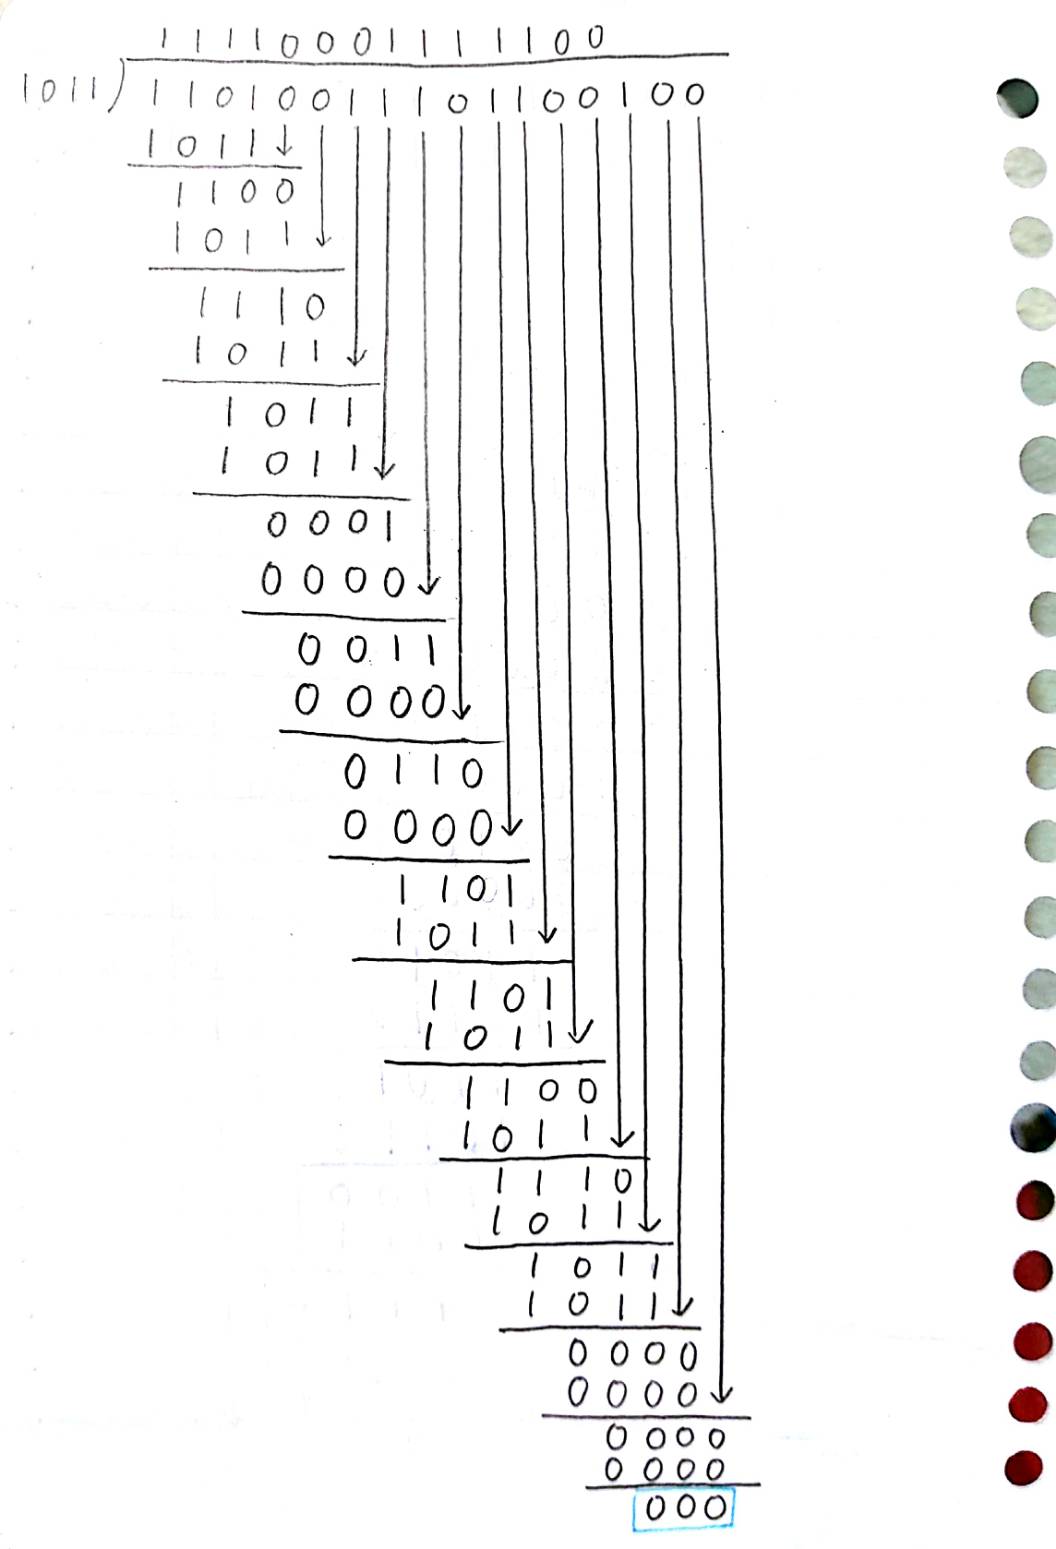 11110001111100
1011)11010011101100100
1011
1100
1011
1110
1011
1011
1011
0001
0000
0011
0000
0110
0000
1101
1011
1101
1011
1100
1011
1110
1011
1011
1011
0000
0000
0000
0000
000